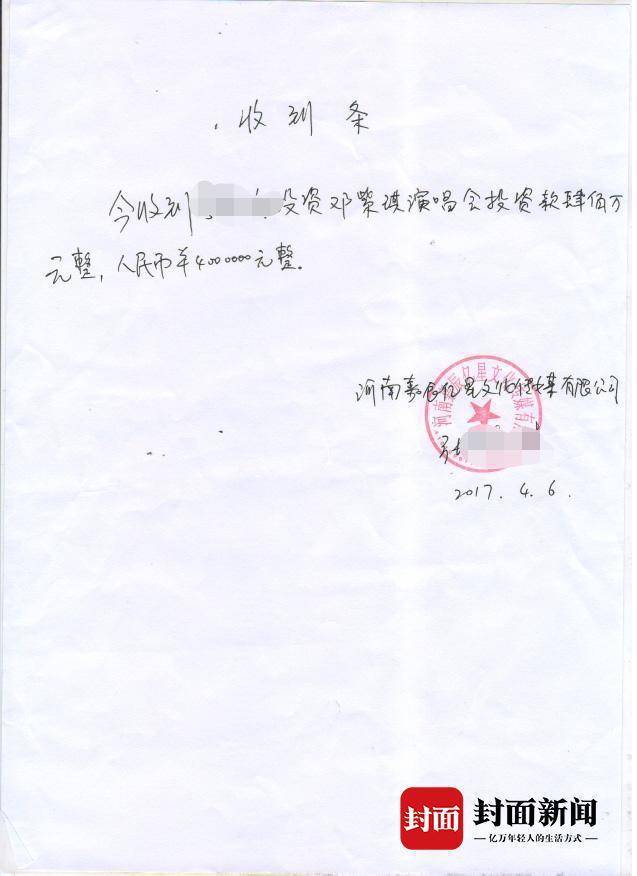 收到条
今收到 投资邓紫棋演唱会投资款肆佰万
元整，人民币￥4000000元整。
河南嘉辰亿星文化传媒有限公司
2017.4.6.
封面 封面新闻
亿万年轻人的生活方式